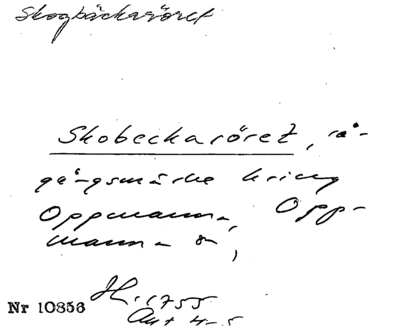 Skogbäckaröret
Skobeckaröret, rå-
gångsmärke kring
Oppmanna, Opp-
manna sn,
H. 1755
Nr 10856 Akt 4-5